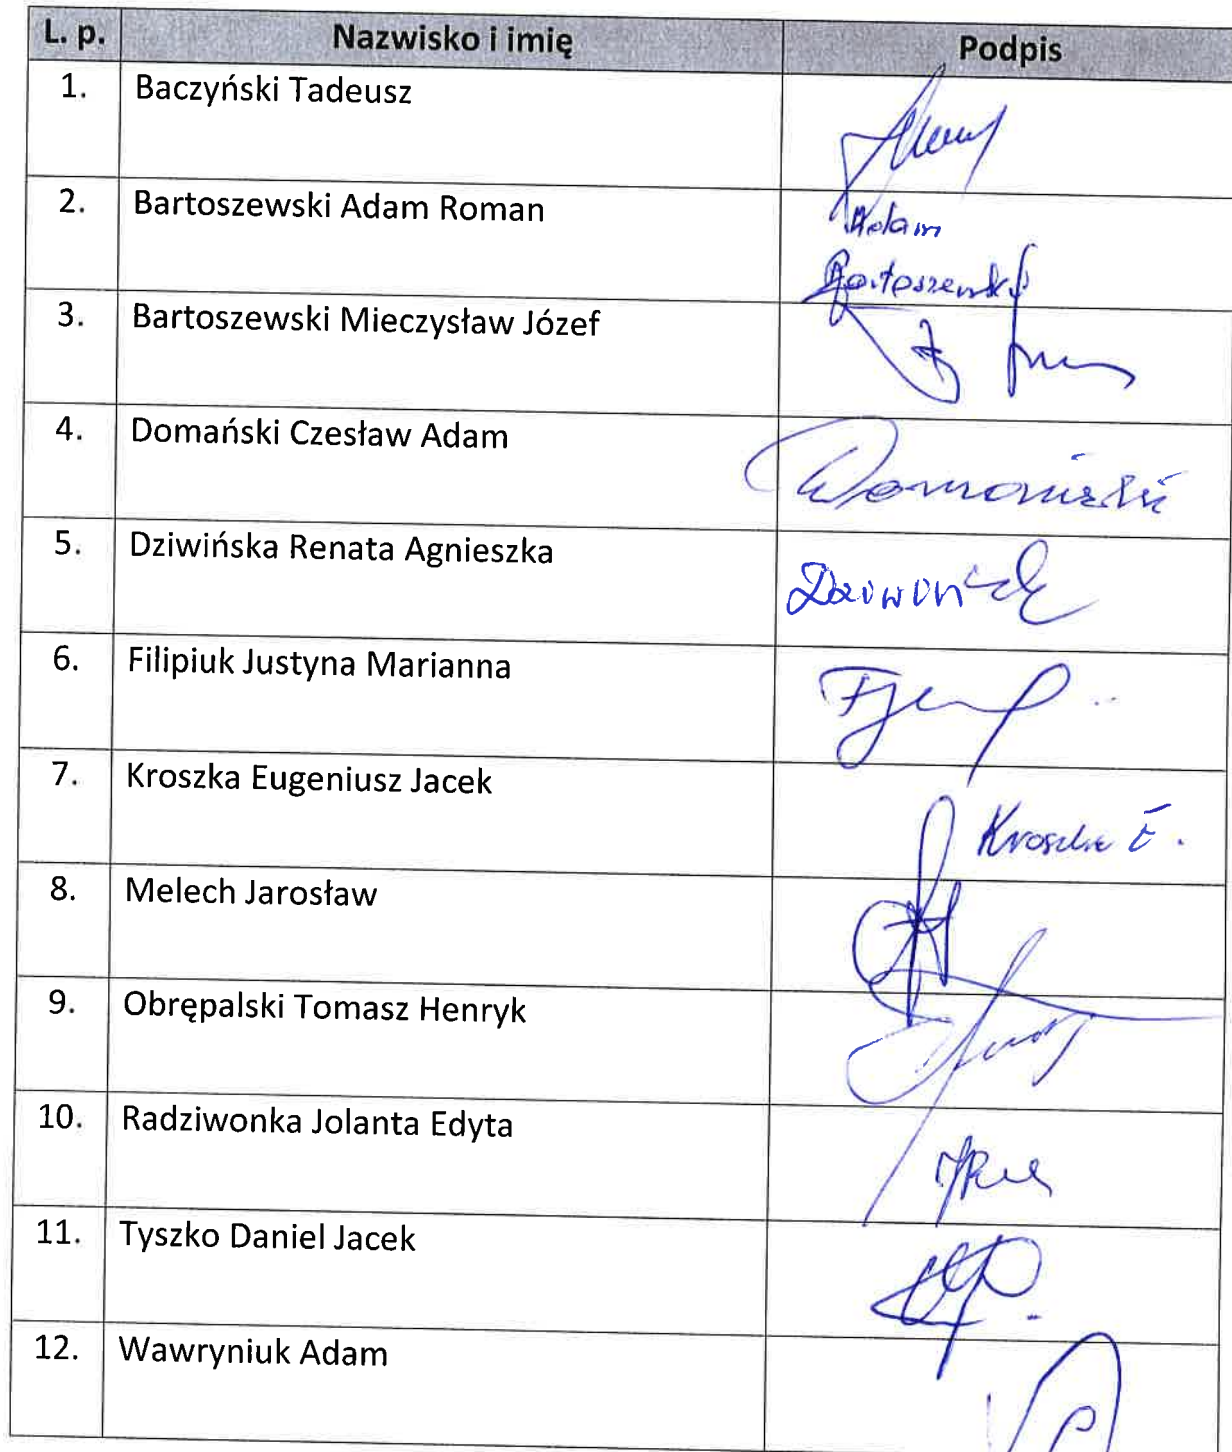 L. p. Nazwisko i imię Podpis
1. Baczyński Tadeusz
2. Bartoszewski Adam Roman Adam
Bartoszewski
3. Bartoszewski Mieczysław Józef
4. Domański Czesław Adam
5. Dziwińska Renata Agnieszka
6. Filipiuk Justyna Marianna
7. Kroszka Eugeniusz Jacek Kroszka E.
8. Melech Jarosław
9. Obrępalski Tomasz Henryk
10. Radziwonka Jolanta Edyta
11. Tyszko Daniel Jacek
12. Wawryniuk Adam